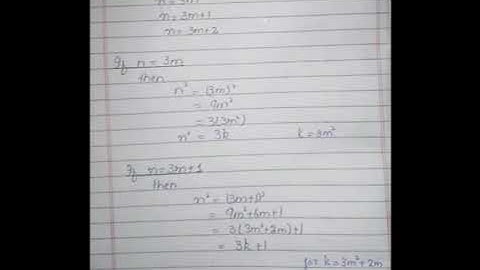 n=3m
n=3m+1
n=3m+2
If n=3m
then
n² = (3m)²
= 9m²
= 3(3m²)
n² = 3k k=3m²
If n=3m+1
then
n² = (3m+1)²
= 9m²+6m+1
= 3(3m²+2m)+1
= 3k+1
for k=3m²+2m